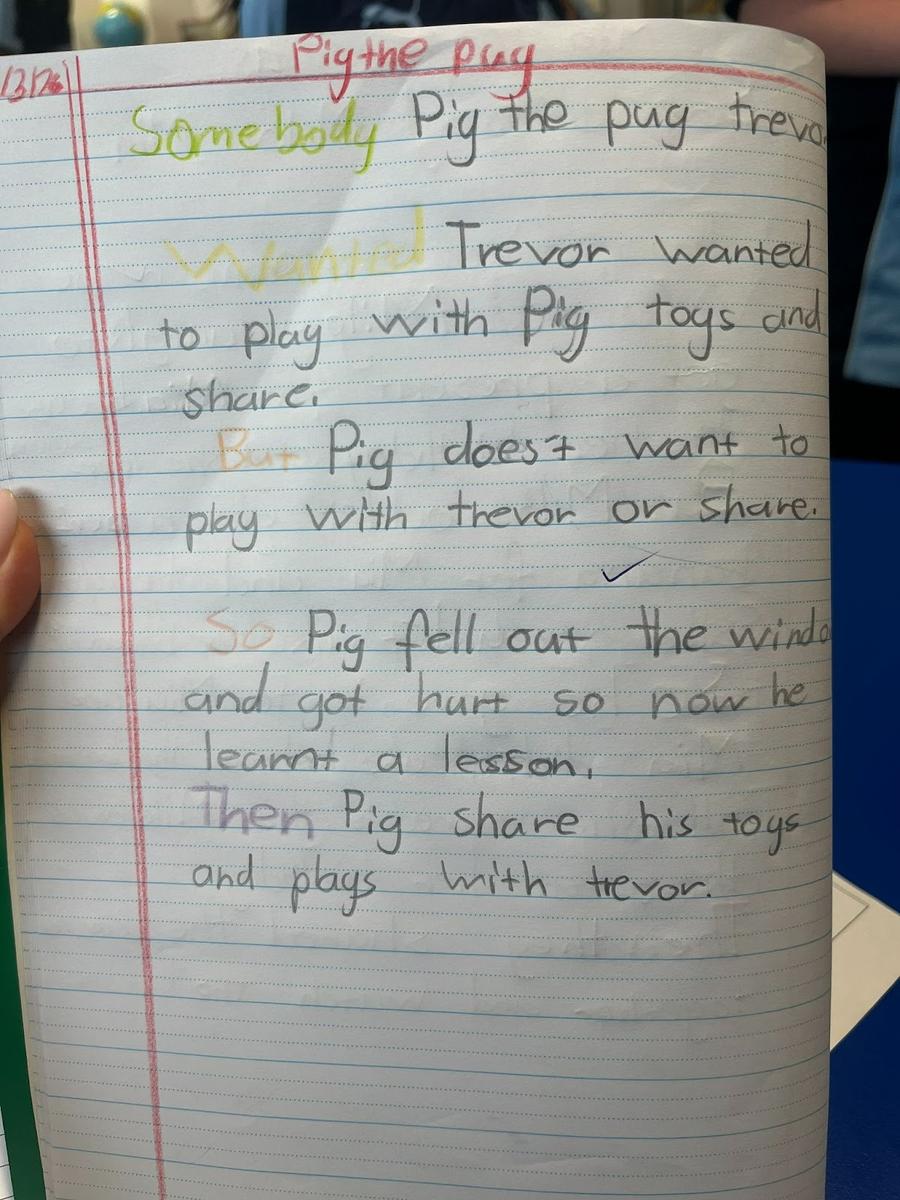 /3/26
Pig the pug
Somebody Pig the pug trevo
Wanted Trevor wanted
to play with Pig toys and
share.
But Pig does't want to
play with trevor or share.
So Pig fell out the windo
and got hurt so now he
learnt a lesson.
Then Pig share his toys
and plays with trevor.